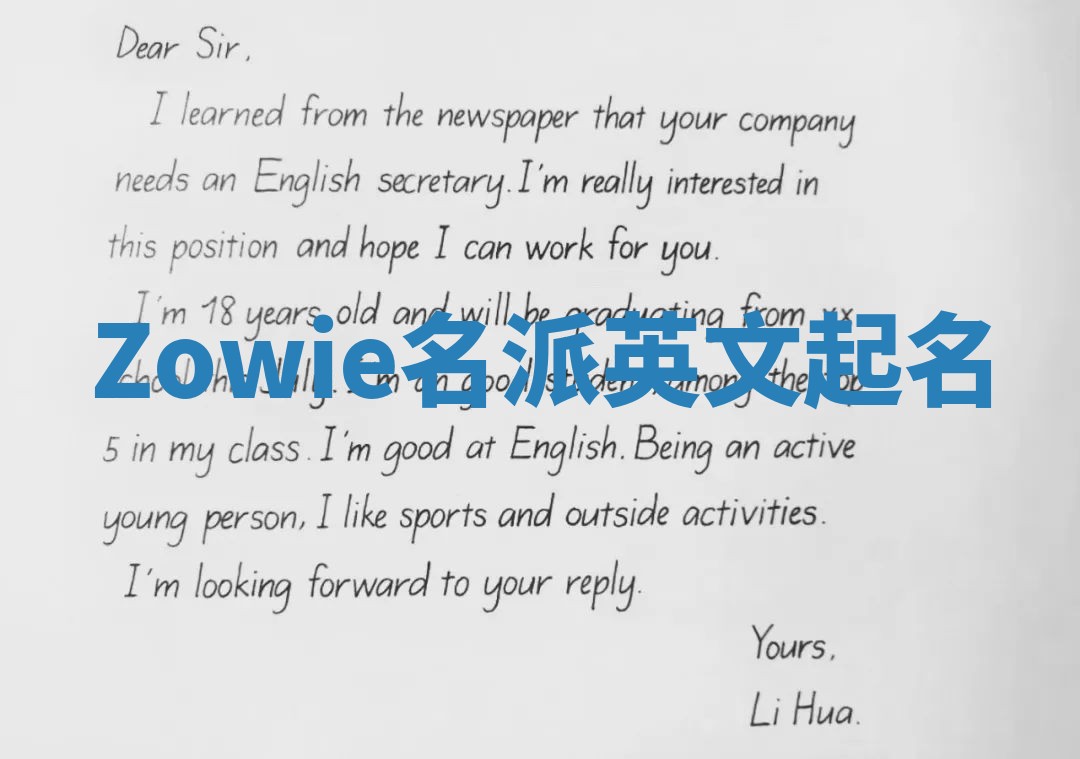 Dear Sir,
I learned from the newspaper that your company
needs an English secretary. I'm really interested in
this position and hope I can work for you.
I'm 18 years old and will be graduating from xx
Zowie名派英文起名
July. I'm good student, among the top
5 in my class. I'm good at English. Being an active
young person, I like sports and outside activities.
I'm looking forward to your reply.
Yours,
Li Hua.